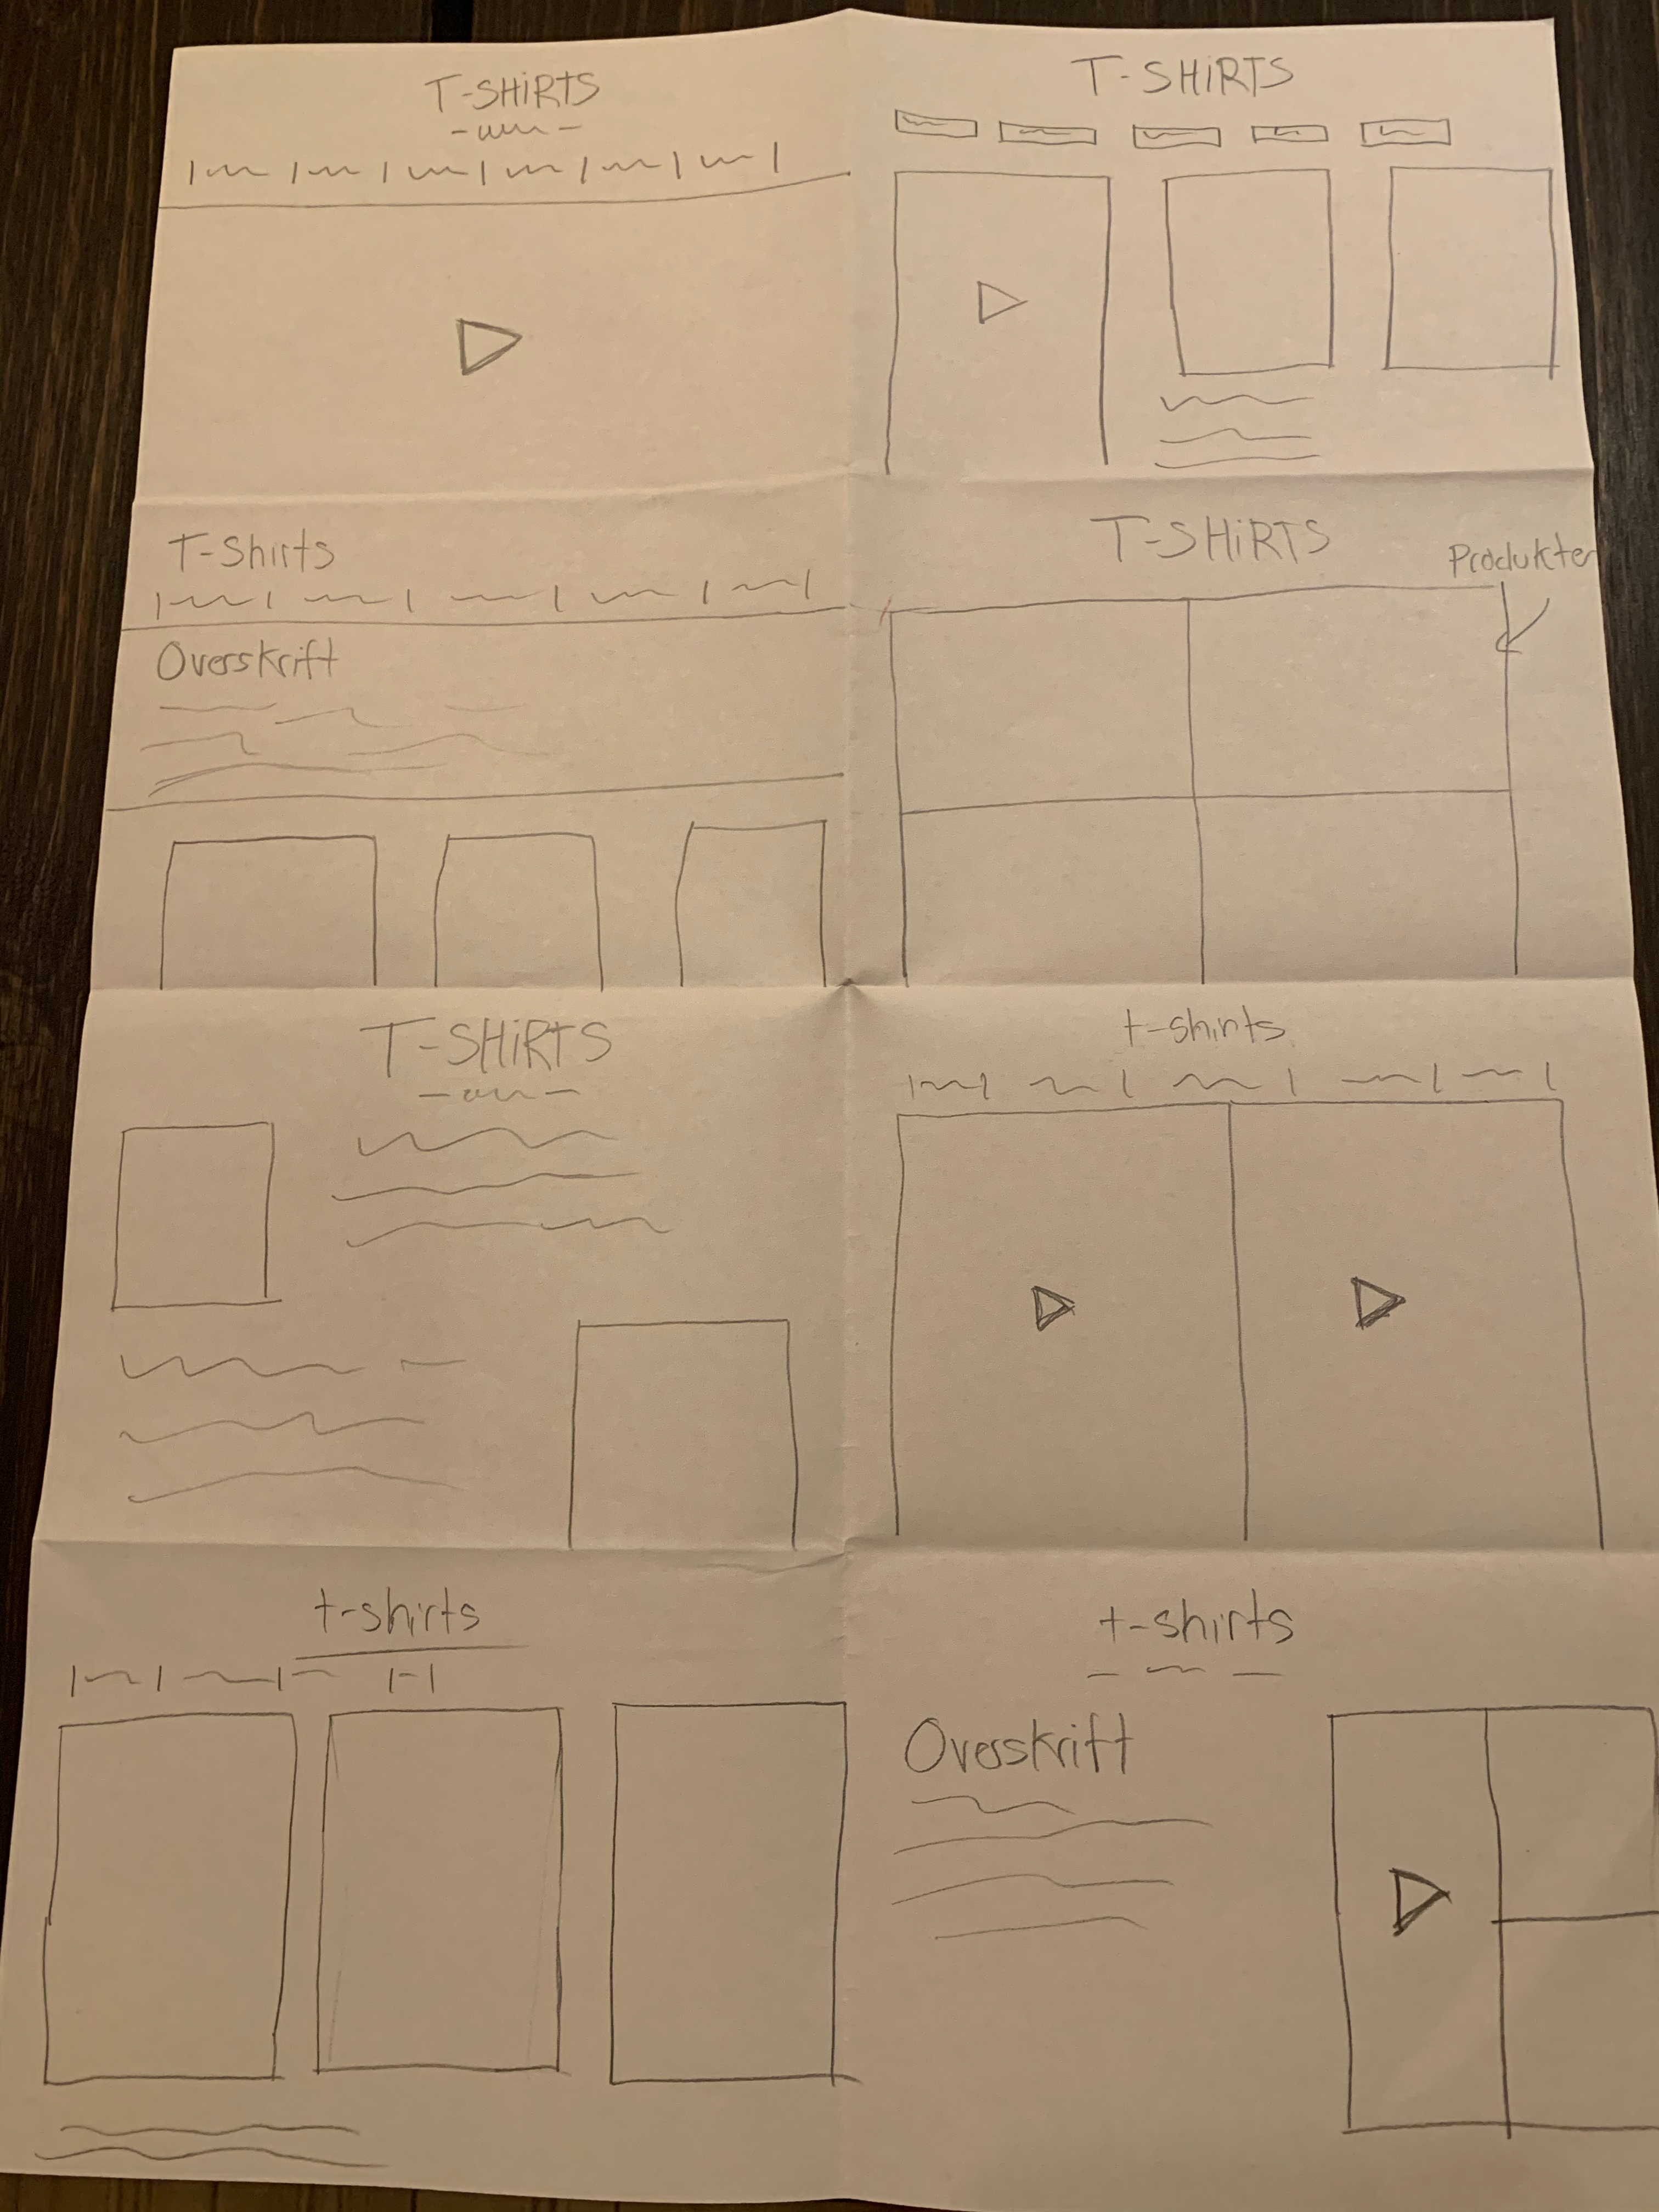 T-SHiRTS
T-SHiRTS
T-Shirts
Overskrift
T-SHiRTS
Produkter
T-SHiRTS
t-shirts
t-shirts
t-shirts
Overskrift